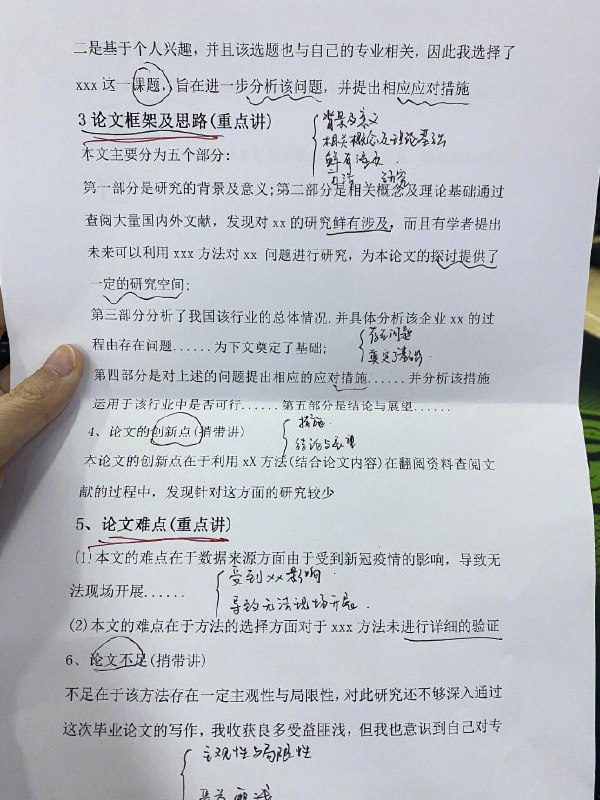 二是基于个人兴趣，并且该选题也与自己的专业相关，因此我选择了
xxx 这一课题，旨在进一步分析该问题，并提出相应应对措施
3 论文框架及思路(重点讲)
背景及意义
相关概念及理论基础
鲜有涉及
本文主要分为五个部分：
第一部分是研究的背景及意义;第二部分是相关概念及理论基础通过
查阅大量国内外文献，发现对 xx 的研究鲜有涉及，而且有学者提出
未来可以利用 xxx 方法对 xx 问题进行研究，为本论文的探讨提供了
一定的研究空间;
第三部分分析了我国该行业的总体情况.并具体分析该企业 xx 的过
程由存在问题......为下文奠定了基础;
存在问题
奠定了基础
第四部分是对上述的问题提出相应的应对措施......并分析该措施
运用于该行业中是否可行......第五部分是结论与展望......
4、论文的创新点(捎带讲)
措施
结论与展望
本论文的创新点在于利用 xX 方法(结合论文内容)在翻阅资料查阅文
献的过程中，发现针对这方面的研究较少
5、论文难点(重点讲)
(1)本文的难点在于数据来源方面由于受到新冠疫情的影响，导致无
法现场开展......
受到xx影响
导致无法现场开展.
(2)本文的难点在于方法的选择方面对于 xxx 方法未进行详细的验证
6、论文不足(捎带讲)
不足在于该方法存在一定主观性与局限性，对此研究还不够深入通过
这次毕业论文的写作，我收获良多受益匪浅，但我也意识到自己对专
主观性与局限性